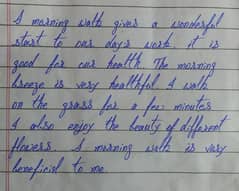 A morning walk gives a wonderful
start to our days work. it is
good for our health. The morning
breeze is very healthful. I walk
on the grass for a few minutes
I also enjoy the beauty of different
flowers. A morning walk is very
beneficial to me.